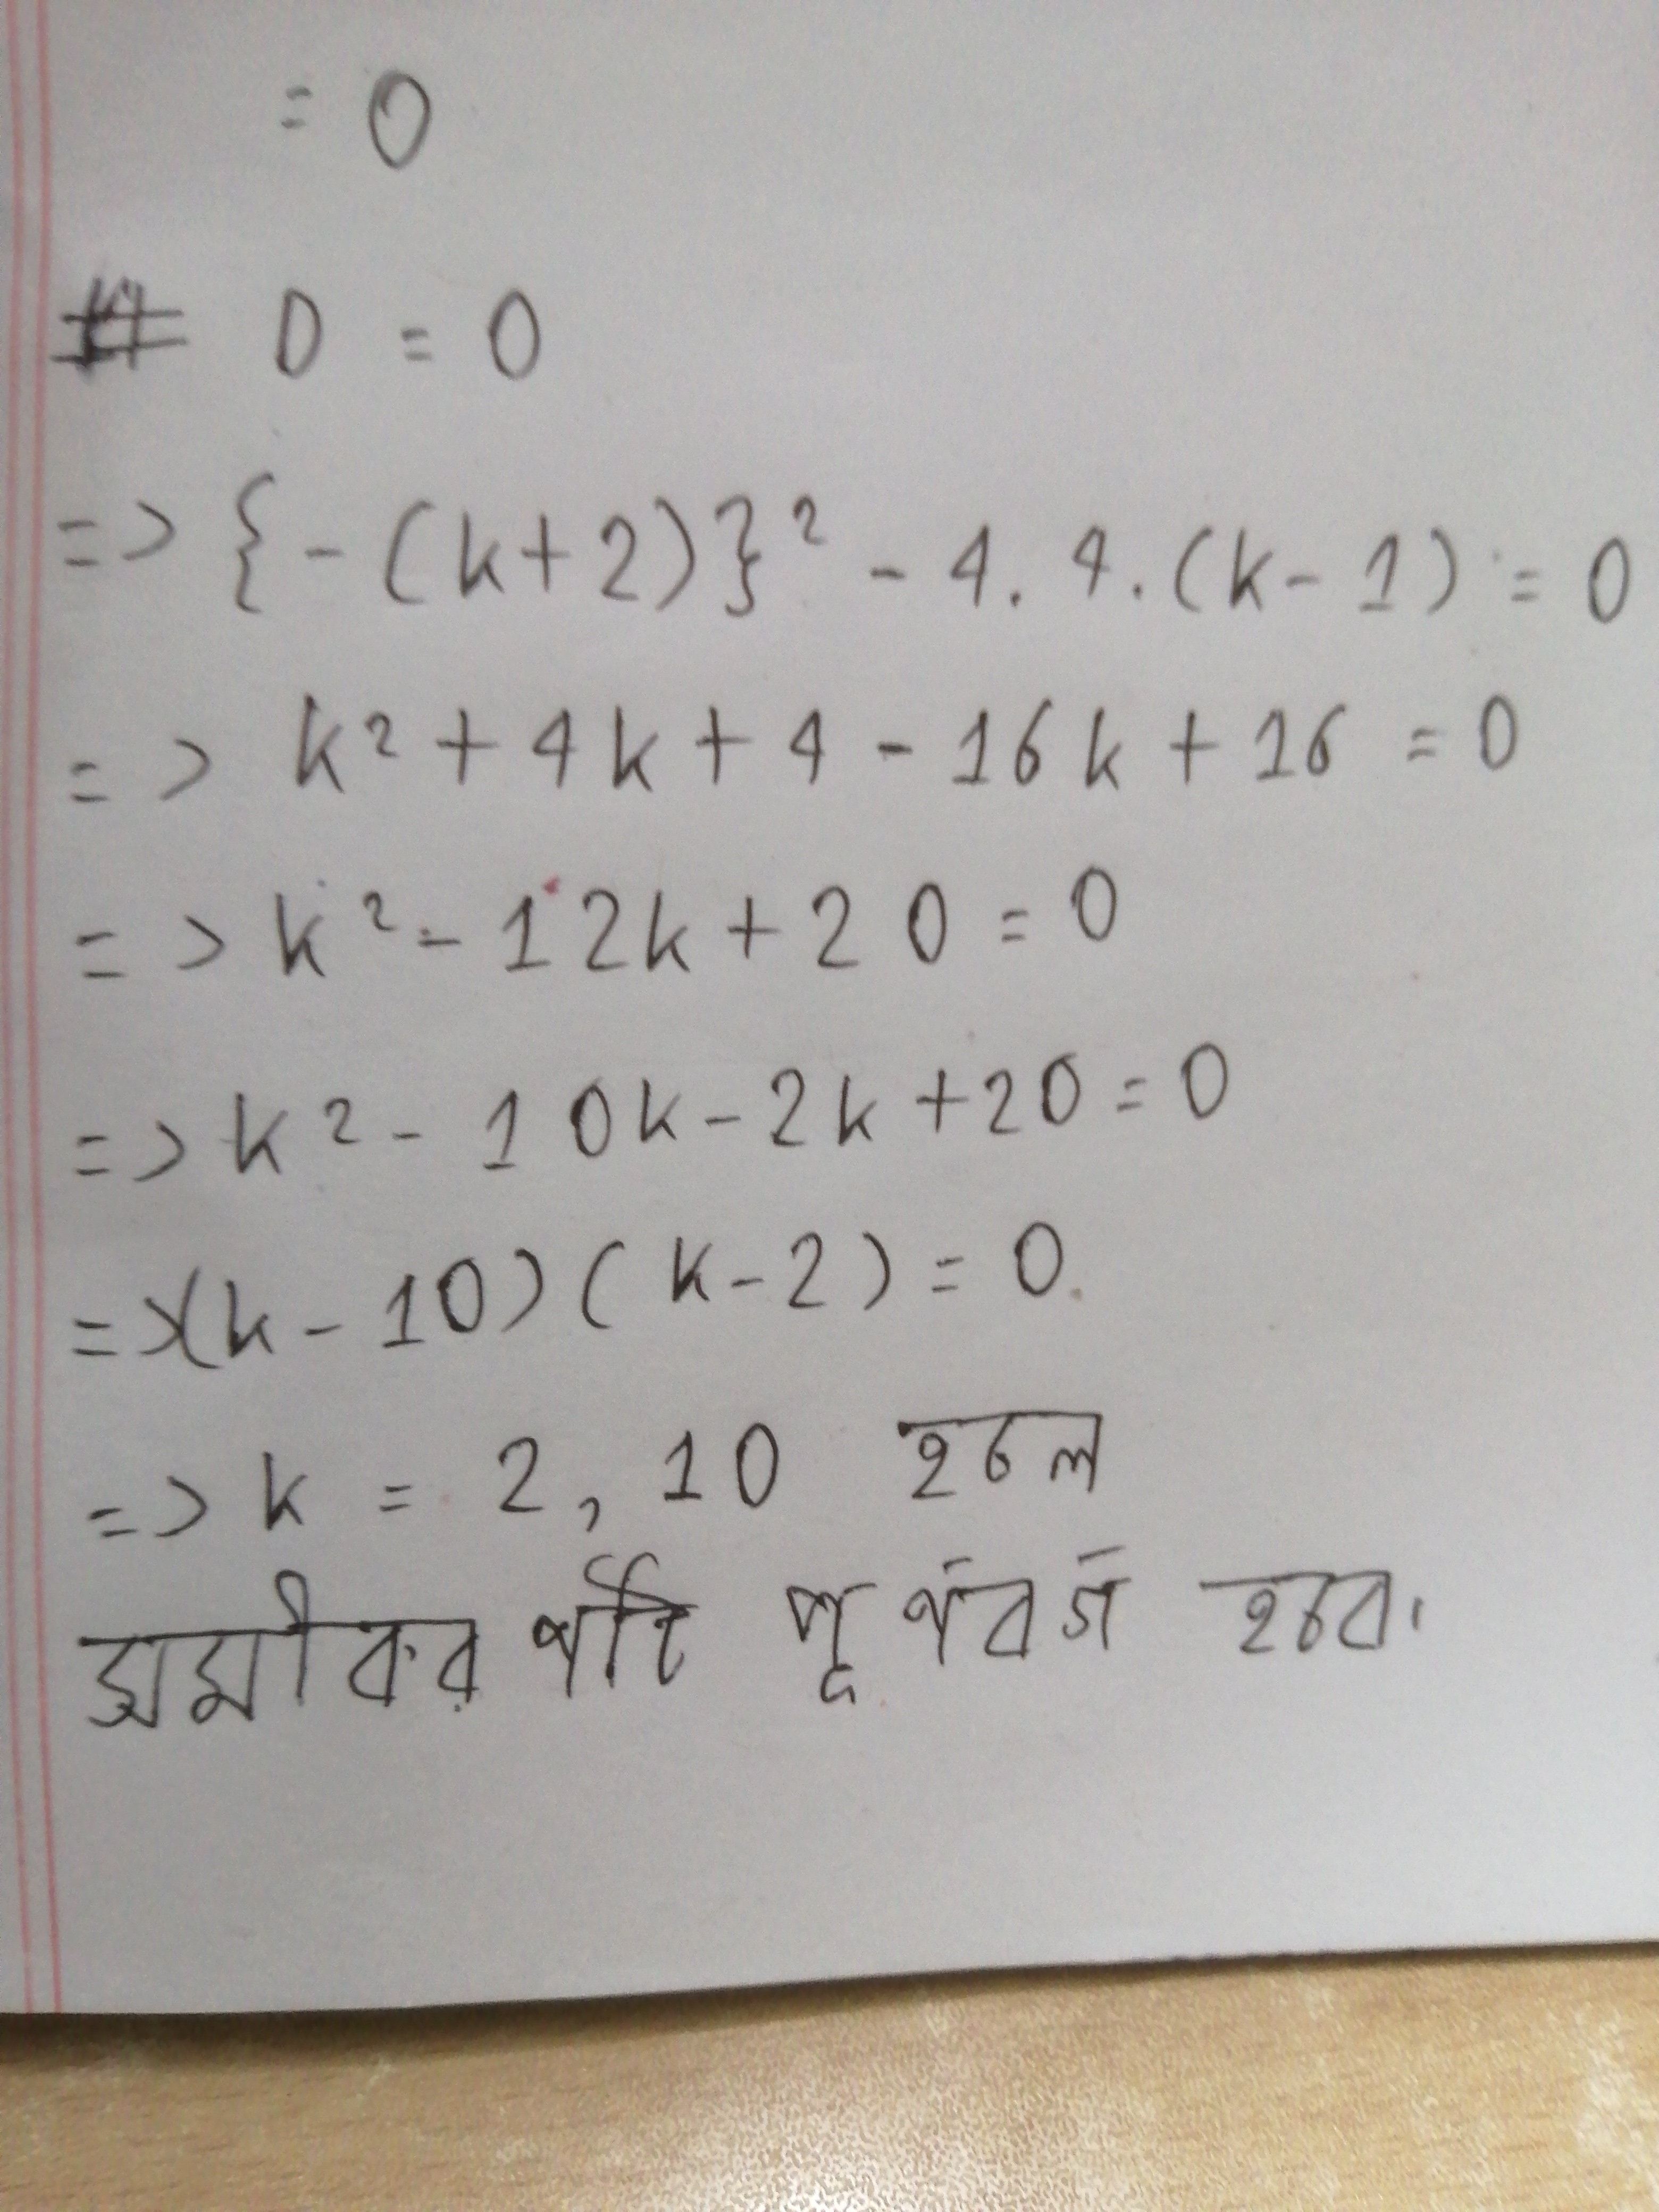 = 0
# D = 0
=> {-(k+2)}² - 4.4.(k-1) = 0
=> k² + 4k + 4 - 16k + 16 = 0
=> k² - 12k + 20 = 0
=> k² - 10k - 2k + 20 = 0
=> (k-10)(k-2) = 0
=> k = 2, 10 হলে
সমীকরণটি পূর্ণবর্গ হবে।